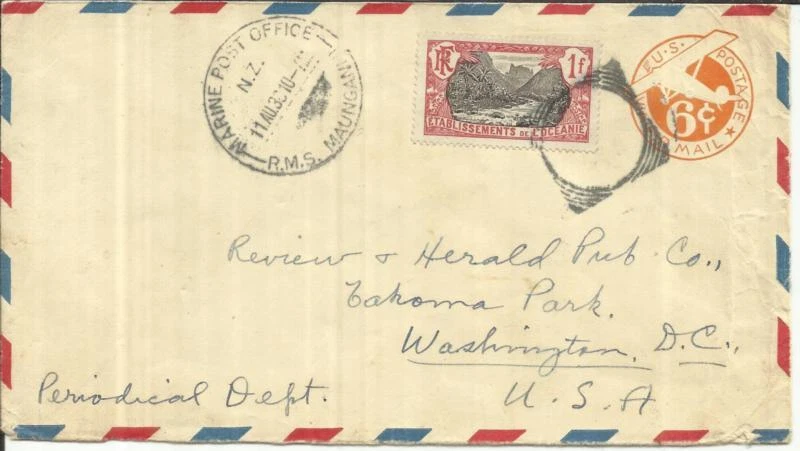 MARINE POST OFFICE
N.Z.
R.M.S. MAUNGANUI
RF
1F
ETABLISSEMENTS de L'OCEANIE
U.S. POSTAGE
6¢
MAIL
Review & Herald Pub. Co.,
Takoma Park.
Washington, D.C.,
U.S.A
Periodical Dept.